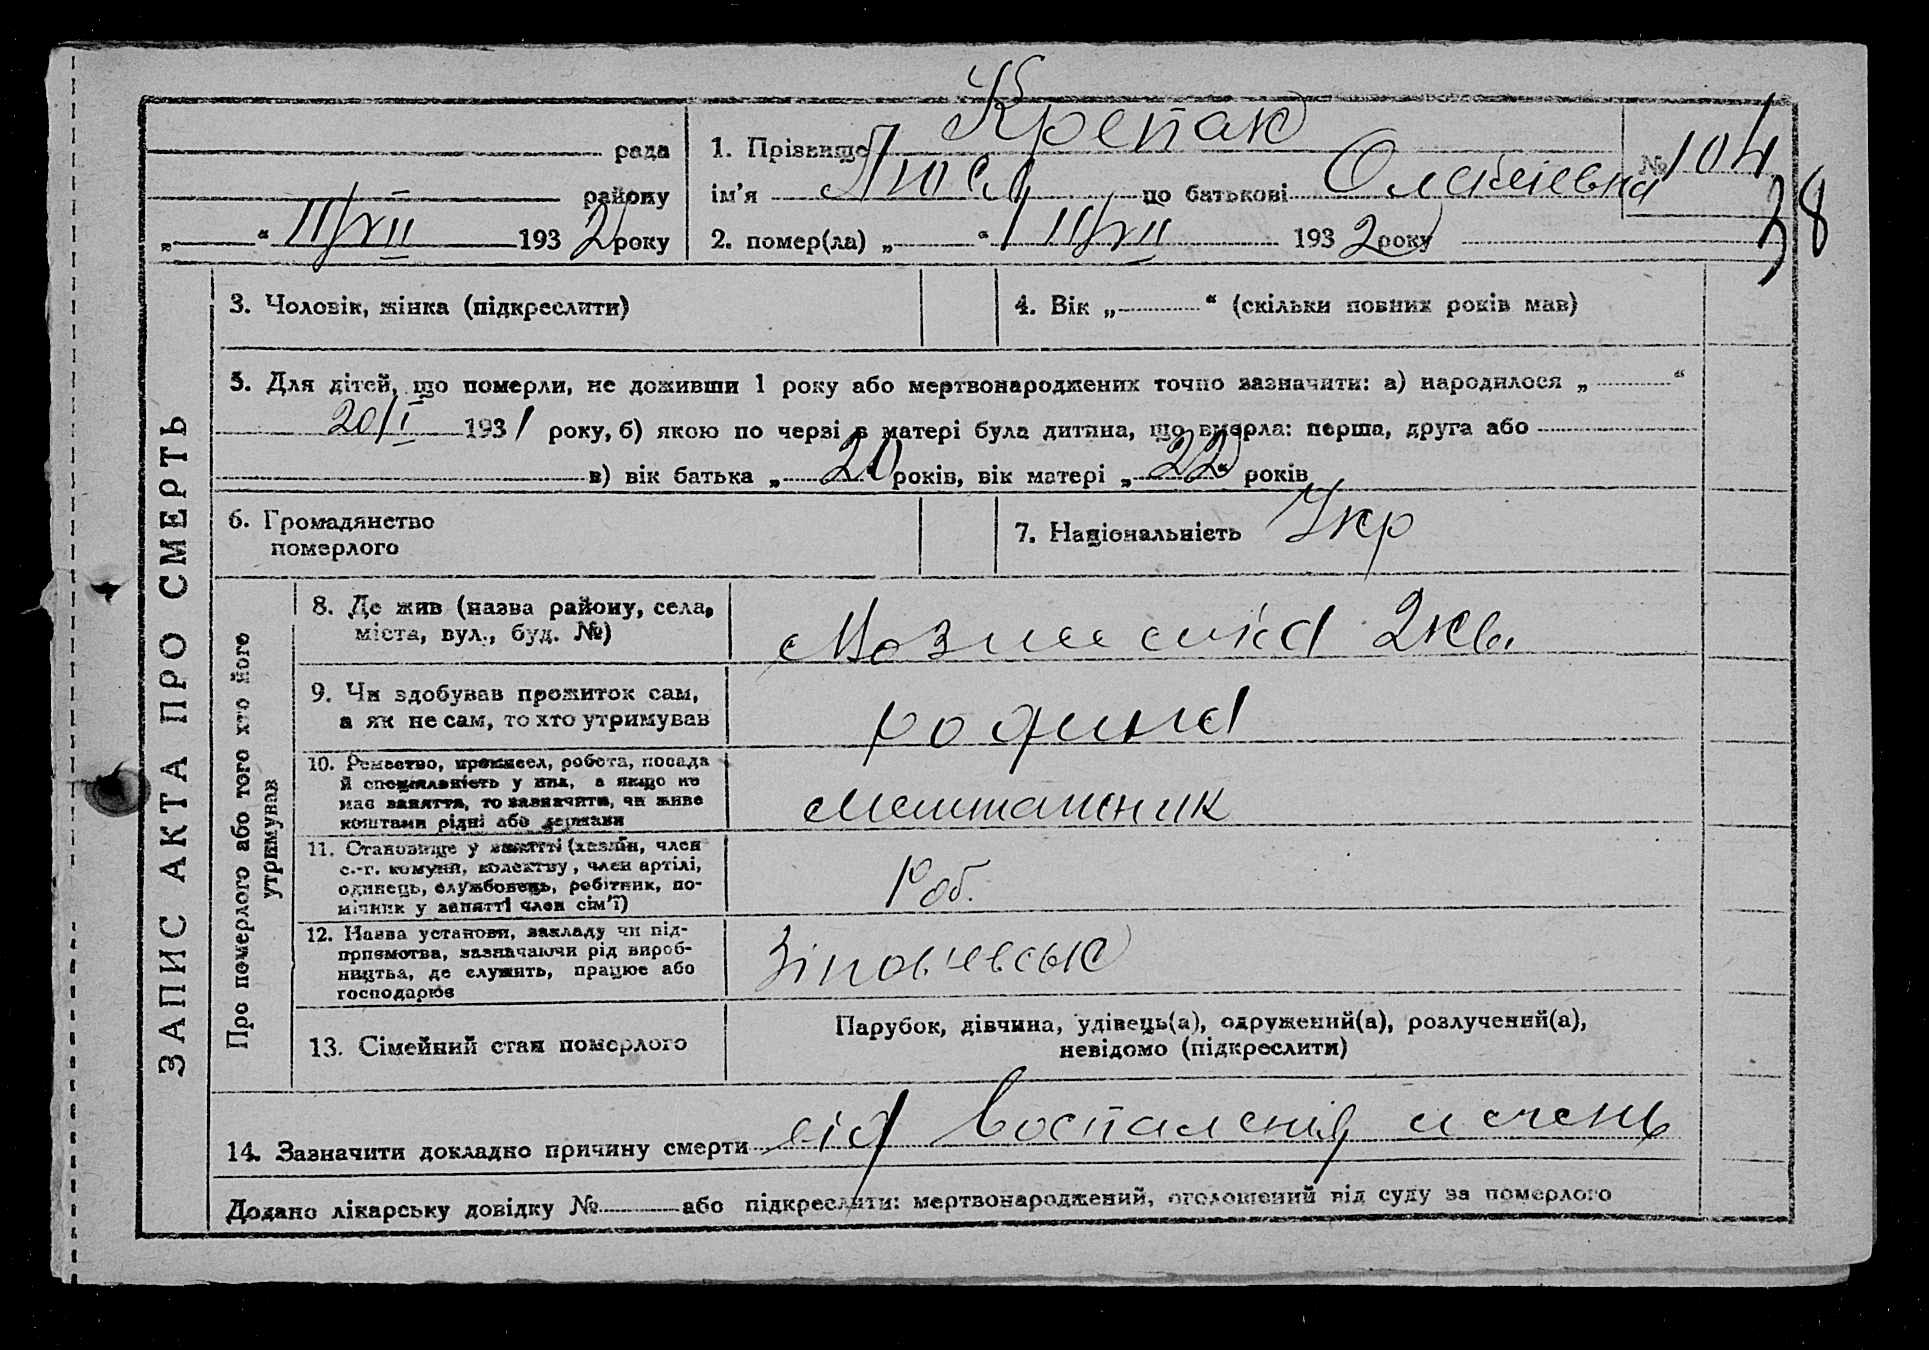 Крепак
рада
1. Прізвище
№ 104
району
ім'я Люся по батькові Олексіевна
38
„ “ 11/VII 1932 року
2. помер(ла) „ “ 11/VII 1932 року
ЗАПИС АКТА ПРО СМЕРТЬ
3. Чоловік, жінка (підкреслити)
4. Вік „ “ (скільки повних років мав)
5. Для дітей, що померли, не доживши 1 року або мертвонароджених точно зазначити: а) народилося „ “
20/I 1931 року, б) якою по черзі в матері була дитина, що вмерла: перша, друга або
в) вік батька „ 21 років, вік матері „ 22“ років
6. Громадянство
померлого
7. Національність Укр
Про померлого або того хто його
утримував
8. Де жив (назва району, села,
міста, вул., буд. №)
2 кв.
9. Чи здобував прожиток сам,
а як не сам, то хто утримував
родина
10. Ремество, промисел, робота, посада
й спеціяльність у них, а якщо не
має заняття, то зазначити, чи живе
коштами рідні або держави
11. Становище у занятті (хазяїн, член
с.-г. комуни, колективу, член артілі,
одинець, службовець, робітник, по-
мічник у занятті член сім'ї)
Роб.
12. Назва установи, закладу чи під-
приємства, зазначаючи рід вироб-
ництва, де служить, працює або
господарює
13. Сімейний стан померлого
Парубок, дівчина, удівець(а), одружений(а), розлучений(а),
невідомо (підкреслити)
14. Зазначити докладно причину смерти від воспаления
Додано лікарську довідку № або підкреслити: мертвонароджений, оголошений від суду за померлого